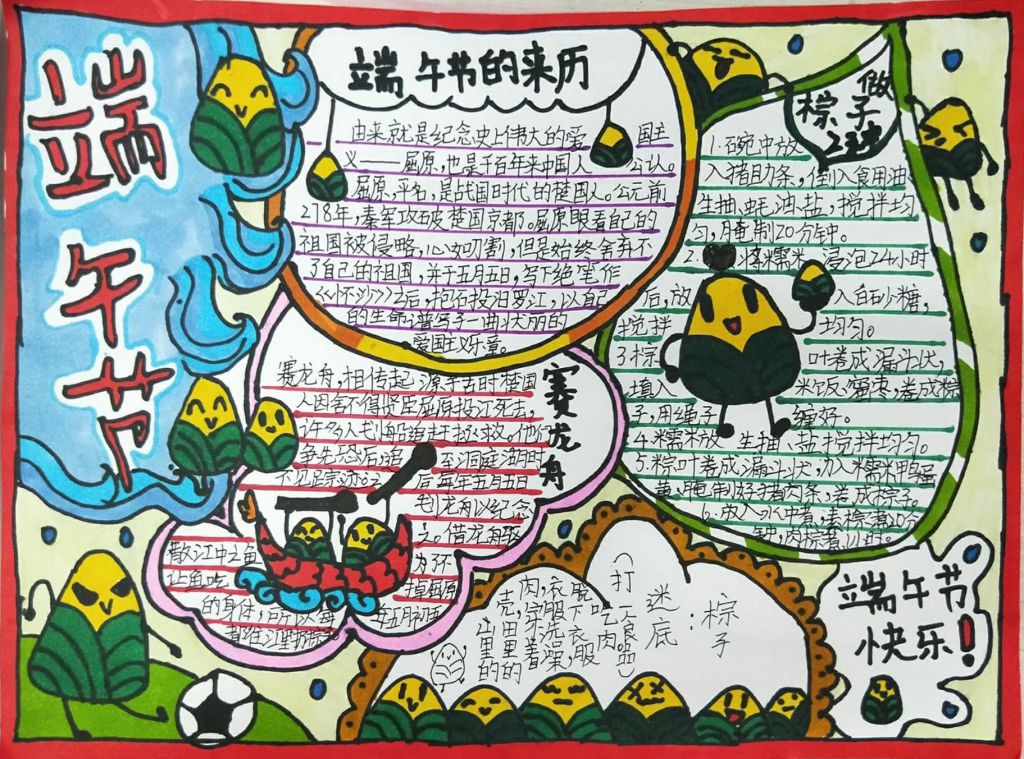 端午节
端午节的来历
由来就是纪念史上伟大的爱国主
义——屈原,也是千百年来中国人公认。
屈原,平名,是战国时代的楚国人。公元前
278年,秦军攻破楚国京都。屈原眼看自己的
祖国被侵略,心如刀割,但是始终舍弃不
了自己的祖国,并于五月五日,写下绝笔作
《怀沙》之后,抱石投汨罗江,以自己
的生命谱写了一曲壮丽的
爱国主义乐章。
做粽子
1.碗中放
入猪肋条,倒入食用油
生抽,蚝油,盐,搅拌均
匀,腌制20分钟。
2.将糯米浸泡24小时
后,放入白砂糖,
搅拌均匀。
3.粽叶卷成漏斗状,
填入米饭,蜜枣,卷成粽
子,用绳子缠好。
4.糯米放生抽、盐搅拌均匀。
5.粽叶卷成漏斗状,加入糯米鸭蛋
黄,腌制好猪肉条,卷成粽子
6.放入水中煮,素粽煮20分
钟,肉粽煮小时。
赛龙舟
赛龙舟,相传起源于古时楚国
人因舍不得贤臣屈原投江死去,
许多人划船追赶拯救。他们
争先恐后,追至洞庭湖时
后每年五月五日
划龙舟以纪念
之。借龙舟驱
散江中之鱼
让鱼吃
的身体,所以每
肉,衣脱
壳,穿服下吃(打
山里洗衣肉一
里里着澡,服食品)
的的
迷底:粽子
端午节
快乐!